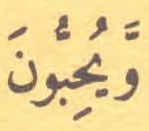 وَّيُحِبُّونَ